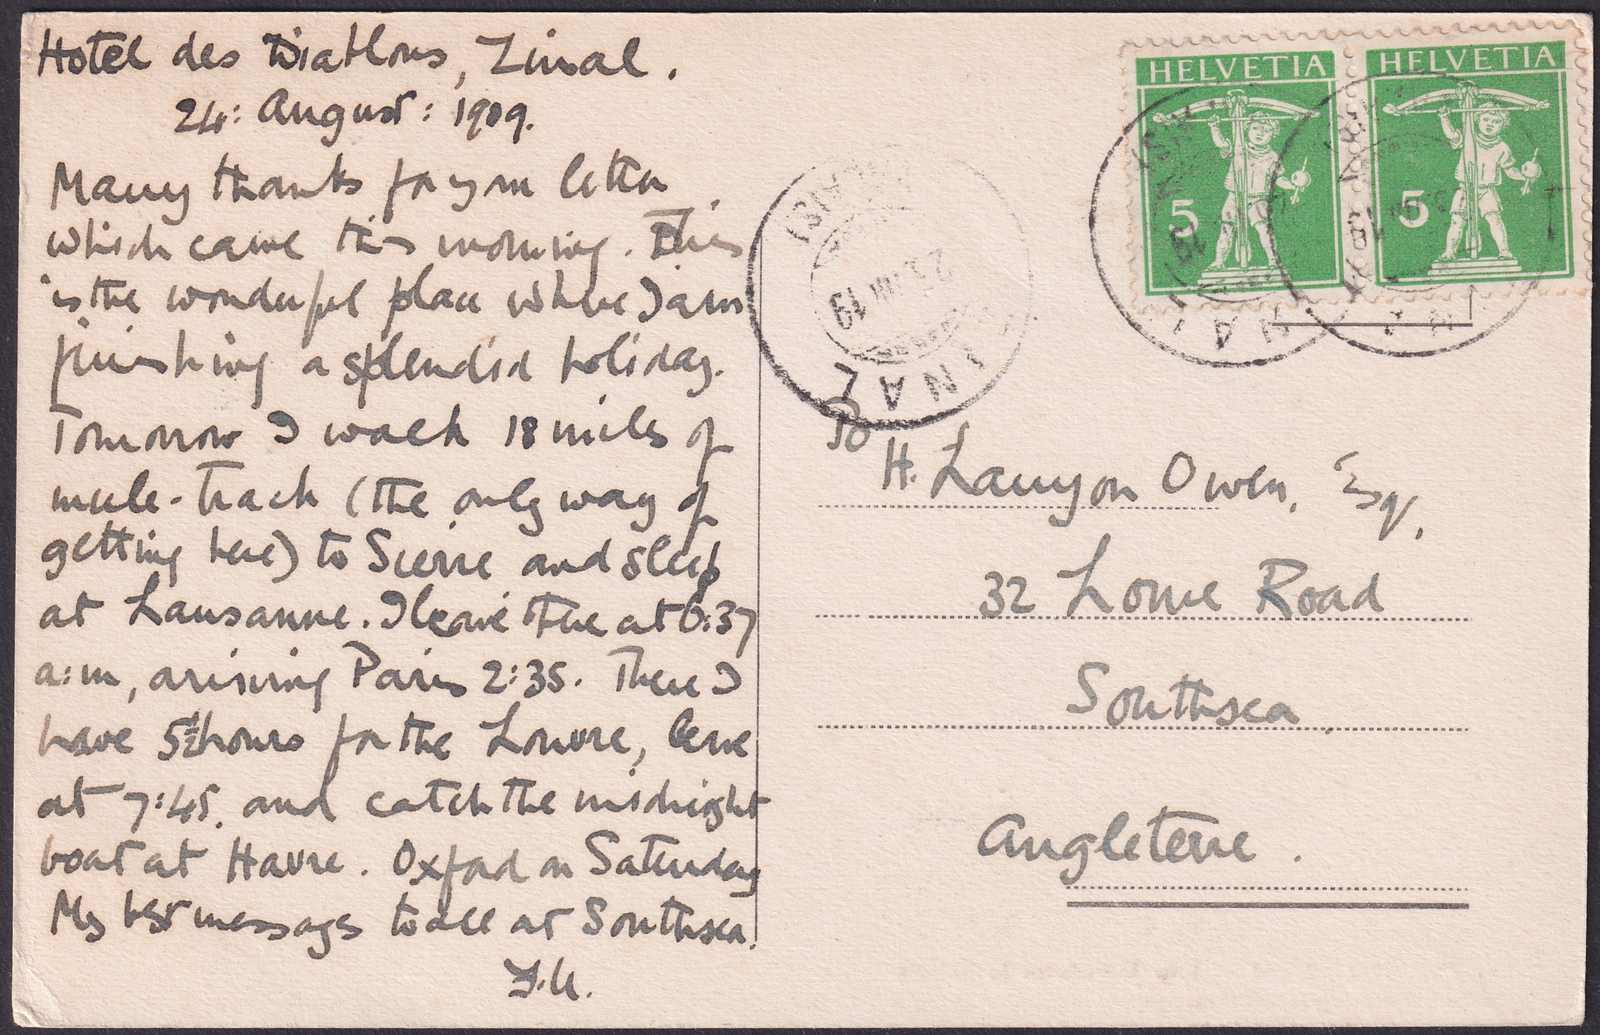 Hotel des Diablons, Zinal.
24: August: 1909.
Many thanks for your letter
which came this morning. This
is the wonderful place where I am
finishing a splendid holiday.
Tomorrow I walk 18 miles of
mule-track (the only way of
getting here) to Sierre and sleep
at Lausanne. I leave there at 6:37
a:m, arising Paris 2:35. There I
have 5½ hours for the Louvre, leave
at 7:45, and catch the midnight
boat at Havre. Oxford on Saturday
My best messages to all at Southsea.
HELVETIA
5
HELVETIA
5
ZINAL
25 VIII 19
To
H. Lanyon Owen, Esq,
32 Lowe Road
Southsea
Angleterre.